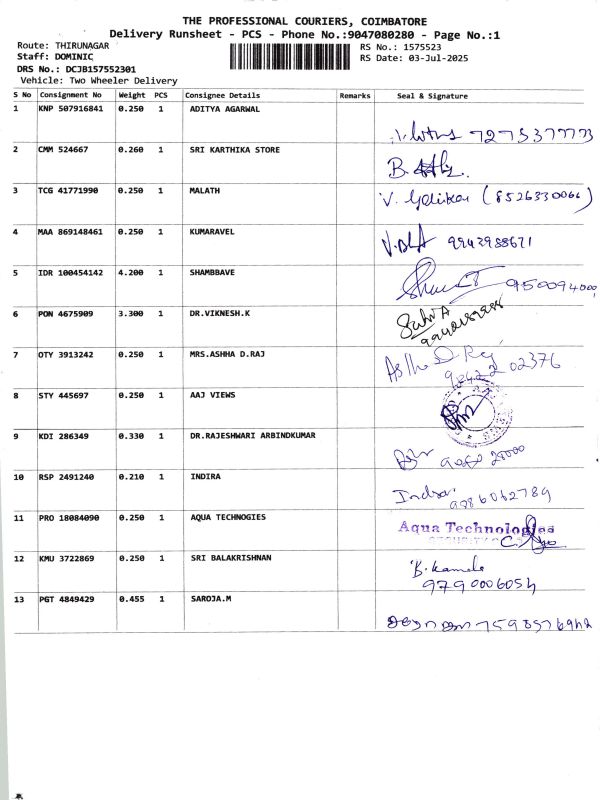 THE PROFESSIONAL COURIERS, COIMBATORE
Delivery Runsheet - PCS - Phone No.:9047080280 - Page No.:1
Route: THIRUNAGAR
RS No.: 1575523
Staff: DOMINIC
RS Date: 03-Jul-2025
DRS No.: DCJB157552301
Vehicle: Two Wheeler Delivery
S No Consignment No Weight PCS Consignee Details Remarks Seal & Signature
1 KNP 507916841 0.250 1 ADITYA AGARWAL
7275377773
2 CMM 524667 0.260 1 SRI KARTHIKA STORE
B.
3 TCG 41771990 0.250 1 MALATH
V. (8526330066)
4 MAA 869148461 0.250 1 KUMARAVEL
9943988671
5 IDR 100454142 4.200 1 SHAMBBAVE
6 PON 4675909 3.300 1 DR.VIKNESH.K
7 OTY 3913242 0.250 1 MRS.ASHHA D.RAJ
Asha D. Raj
98422 02376
8 STY 445697 0.250 1 AAJ VIEWS
9 KDI 286349 0.330 1 DR.RAJESHWARI ARBINDKUMAR
10 RSP 2491240 0.210 1 INDIRA
Indira
9886062789
11 PRO 18084090 0.250 1 AQUA TECHNOGIES
Aqua Technologies
12 KMU 3722869 0.250 1 SRI BALAKRISHNAN
B. Kamala
9790006054
13 PGT 4849429 0.455 1 SAROJA.M